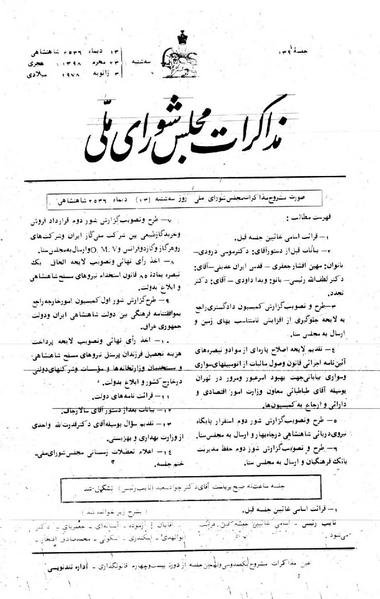 جلسهٔ ۱۳۹
سه‌شنبه
۱۳ دیماه ۲۵۳۶ شاهنشاهی
۲۳ محرم ۱۳۹۸ هجری
۳ ژانویه ۱۹۷۸ میلادی
مذاکرات مجلس شورای ملی
صورت مشروح مذاکرات مجلس شورای ملی روز سه‌شنبه (۱۳) دیماه ۲۵۳۶ شاهنشاهی
فهرست مطالب :
۱- قرائت اسامی غائبین جلسه قبل.
۲- بیانات قبل از دستور آقای: دکتر موسی درودی-
بانوان: مهین افشار جعفری - قدس ایران عدنیتی - آقای:
دکتر لطف‌الله رئیسی- بانو: ویدا داودی - آقای: دکتر
تجدد.
۳- طرح و تصویب گزارش کمیسیون دادگستری راجع
به لایحه جلوگیری از افزایش نامتناسب بهای زمین و
ارسال به مجلس سنا.
۴- تقدیم لایحه اصلاح پاره‌ای از مواد و تبصره‌های
آئین‌نامه اجرائی قانون وصول مالیات از اتومبیلهای سواری
وسواری بیابانی جهت بهبود امر عبور و مرور در تهران
بوسیله آقای طباطبائی معاون وزارت امور اقتصادی و
دارائی و ارجاع به کمیسیون‌ها.
۵- طرح و تصویب گزارش شور دوم استقرار پایگاه
نیروی دریائی شاهنشاهی در چاه‌بهار و ارسال به مجلس سنا.
۶- طرح و تصویب گزارش شور دوم حفظ مدیریت
بانک فرهنگیان و ارسال به مجلس سنا.
۷- طرح و تصویب گزارش شور دوم قرارداد فروش
و خرید گاز طبیعی بین شرکت ملی گاز ایران و شرکت‌های
روهر گاز و گاز دوفرانس و O.M.V و ارسال به مجلس سنا.
۸- اخذ رأی نهائی و تصویب لایحه الحاق یک
تبصره بماده ۸۸ قانون استخدام نیروهای مسلح شاهنشاهی
و ابلاغ بدولت.
۹- طرح گزارش شور اول کمیسیون امور خارجه راجع
بموافقتنامه فرهنگی بین دولت شاهنشاهی ایران و دولت
جمهوری عراق.
۱۰- اخذ رأی نهائی و تصویب لایحه پرداخت
هزینه تحصیل فرزندان پرسنل نیروهای مسلح شاهنشاهی
و مستخدمان وزارتخانه‌ها و مؤسسات و شرکتهای دولتی
در خارج کشور و ابلاغ بدولت.
۱۱- قرائت نامه‌های دولت.
۱۲- بیانات بعد از دستور آقای سالار جاف.
۱۳- تقدیم سؤال بوسیله آقای دکتر قدرت‌الله واحدی
از وزارت بهداری و بهزیستی.
۱۴- اعلام تعطیلات زمستانی مجلس شورای ملی-
ختم جلسه.
جلسه ساعت نه صبح بریاست آقای دکتر جواد سعید (نایب رئیس) تشکیل شد
۱- قرائت اسامی غائبین جلسه قبل.
نایب رئیس - اسامی غائبین جلسه قبل قرائت
میشود.
(بشرح زیر خوانده شد)
عین مذاکرات مشروح یکصدوسی و نهمین جلسه از دوره بیست و چهارم قانونگذاری - اداره تندنویسی